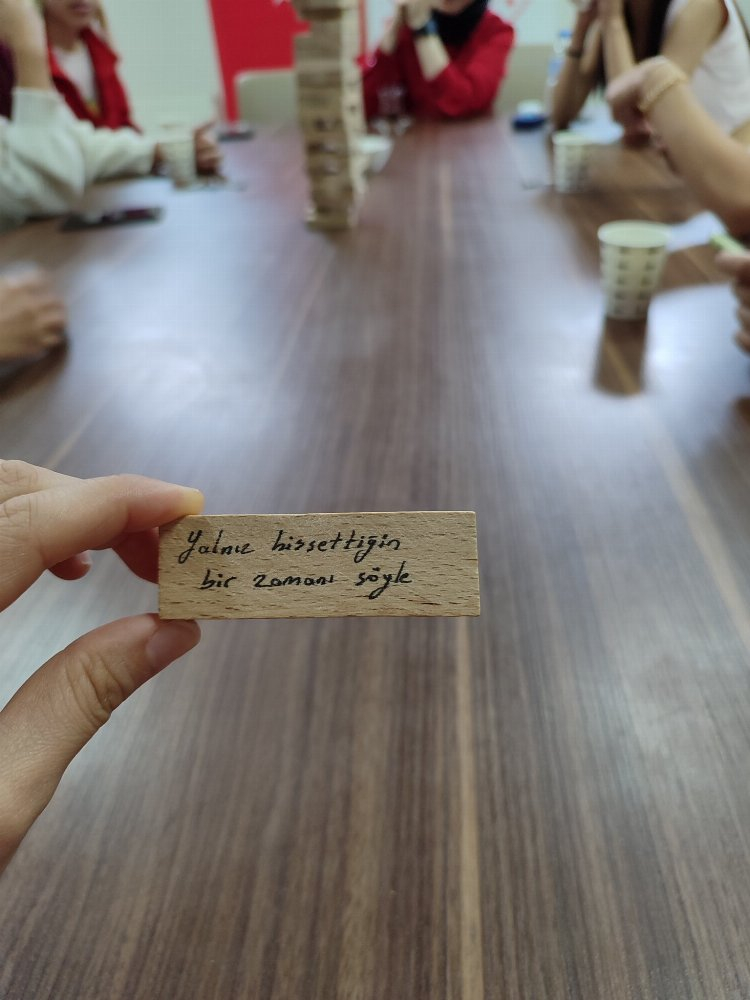 Yalnız hissettiğin
bir zamanı söyle